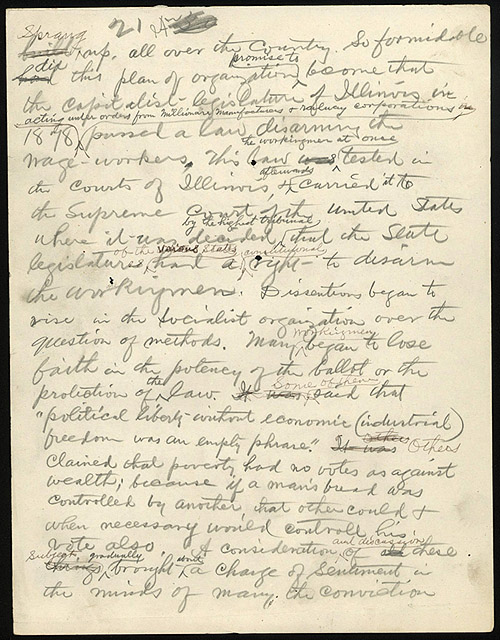 21
Sprang
built up, all over the Country. So formidable
did promise to
had this plan of organization become that
the capitalist-legislature of Illinois in
acting under orders from Millionaire Manufacturers & railway corporations, in
1878, passed a law disarming the
the workingmen at once
wage-workers, This law was tested in
afterwards
the Courts of Illinois & carried it to
the Supreme Court of the United States
by the highest tribunal
where it was decided that the State
of the various States constitutional
legislatures had a right to disarm
the workingmen. Dissentions began to
rise in the Socialist organization over the
workingmen
question of methods. Many began to lose
faith in the potency of the ballot or the
the Some of them
protection of law. It was said that
"political liberty without economic (industrial)
others
freedom was an empty phrase." It was Others
claimed that poverty had no votes as against
wealth; because if a man's bread was
controlled by another, that other could &
when necessary would control his
and discussion
vote also. A consideration of these
Subjects, gradually about
things, brought a change of Sentiment in
the minds of many, the conviction